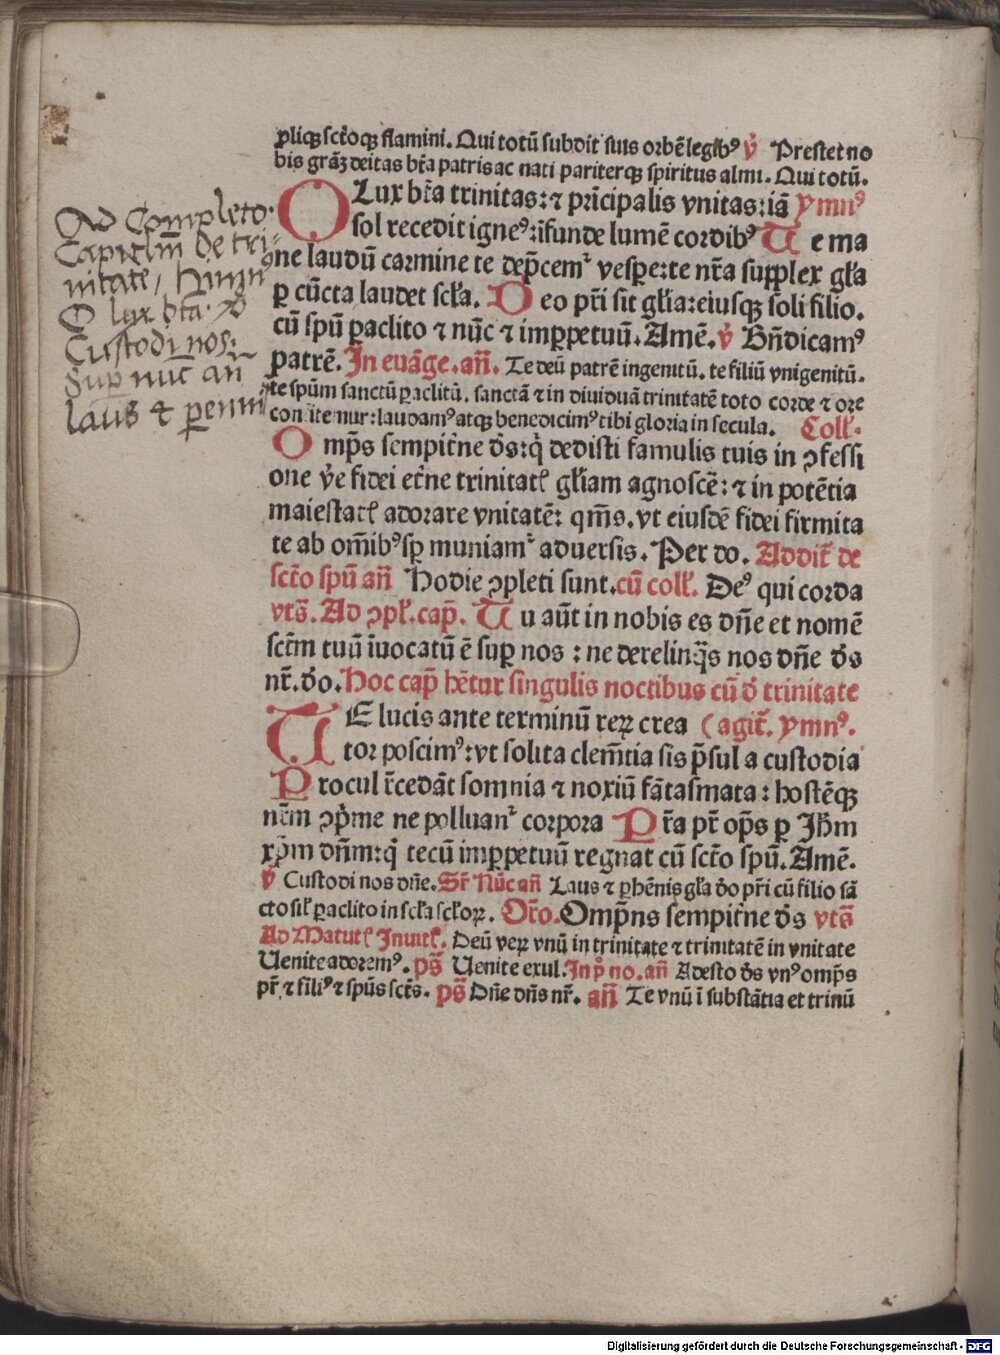 ꝓliqꝫ sctõqꝫ flamini. Qui totũ subdit suis orbẽ legibꝰ ℣ Prestet no
bis grãꝫ deitas btã patris ac nati pariterqꝫ spiritus almi. Qui totũ.
O Lux btã trinitas: ⁊ prĩcipalis vnitas: iã ymnꝰ
sol recedit igneꝰ: ĩfunde lumẽ cordibꝰ Te ma
ne laudũ carmine te dep̃cem᷑ vespere: te nrã supplex glã
ꝑ cũcta laudet sclã. Deo prĩ sit glĩa: eiusqꝫ soli filio.
cũ spũ ꝑaclito ⁊ nũc ⁊ imꝑpetuũ. Amẽ. ℣ Bñdicamꝰ
patrẽ. In euãge. añ. Te deũ patrẽ ingenitũ. te filiũ vnigenitũ.
te spũm sanctũ ꝑaclitũ. sanctã ⁊ in diuiduã trinitatẽ toto corde ⁊ ore
confitemur: laudamꝰ atqꝫ benedicimꝰ tibi gloria in secula. Coll̃.
Omp̃s sempit̃ne d̃s: q̃ dedisti famulis tuis in ꝯfessi
one ṽe fidei et̃ne trinitatꝭ gl̃iam agnoscẽ: ⁊ in potẽtia
maiestatꝭ adorare vnitatẽ: qm̃s. vt eiusdẽ fidei firmita
te ab om̃ibꝰ sp̱ muniam᷑ aduersis. Per do. Addit̃ de
sctõ spũ añ Hodie ꝯpleti sunt. cũ coll̃. Deꝰ qui corda
vts̃. Ad ꝯpl̃. cap̃. Tu aũt in nobis es dñe et nomẽ
sctm̃ tuũ ĩuocatũ ẽ suꝑ nos: ne derelinq̃s nos dñe d̃s
nr̃. d̃o. Hoc cap̃ hẽtur singulis noctibus cũ d̃ trinitate
TE lucis ante terminũ reꝝ crea (agit̃. ymnꝰ.
tor poscimꝰ: vt solita clem̃tia sis p̃sul a custodia
Procul r̃cedãt somnia ⁊ noxiũ fãtasmata: hostẽqꝫ
nr̃m ꝯp̃me ne polluan᷑ corpora Pr̃a pr̃ op̃s ꝑ Jhm̃
xp̃m dñm: q̃ tecũ imꝑpetuũ regnat cũ sctõ spũ. Amẽ.
℣ Custodi nos dñe. Sr̃ Nũc añ Laus ⁊ ꝑhẽnis glã d̃o prĩ cũ filio sã
cto sil̃ ꝑaclito in sclã scloꝝ. Or̃o. Omp̃ns sempit̃ne d̃s vts̃
Ad Matutꝭ Inuitꝭ. Deũ veꝝ vnũ in trinitate ⁊ trinitatẽ in vnitate
Uenite adoremꝰ. ps̃ Uenite exul. In p̃ no. añ Adesto d̃s vnꝰ omp̃s
pr̃ ⁊ filiꝰ ⁊ spũs sct̃s. ps̃ Dñe dñs nr̃. añ Te vnũ ĩ substãtia et trinũ
Ad Completo.
Capitlm̃ de tri-
nitate / himnꝰ
O lux btã. ℣
Custodi nos.
Super nũc añ
laus ⁊ perenni
Digitalisierung gefördert durch die Deutsche Forschungsgemeinschaft - DFG